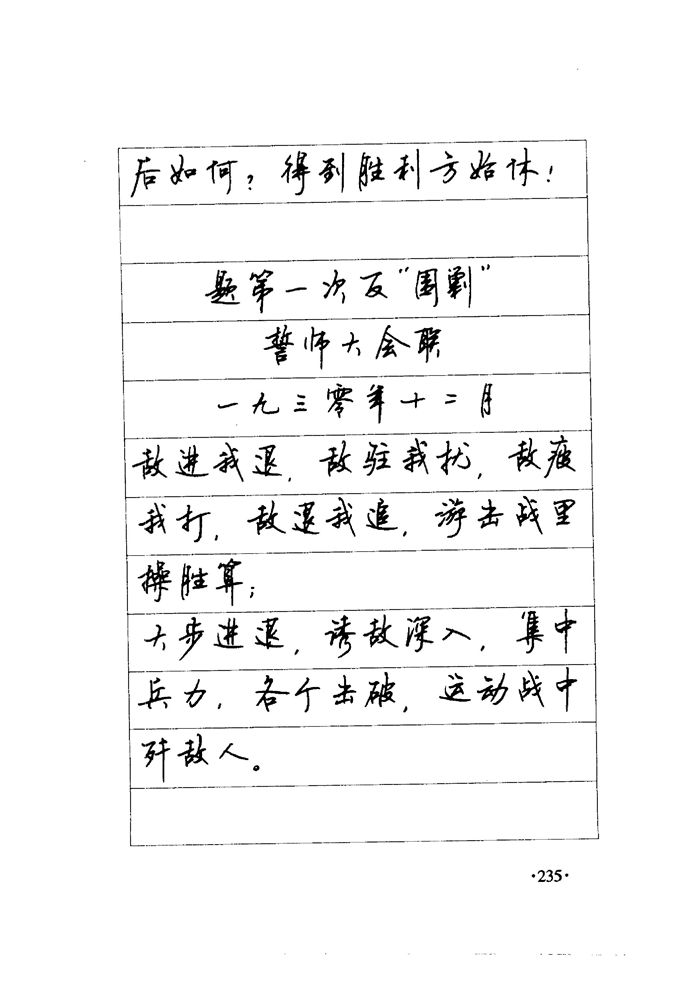 后如何？得到胜利方始休！
题第一次反“围剿”
誓师大会联
一九三零年十二月
敌进我退，敌驻我扰，敌疲
我打，敌退我追，游击战里
操胜算；
大步进退，诱敌深入，集中
兵力，各个击破，运动战中
歼敌人。
·235·